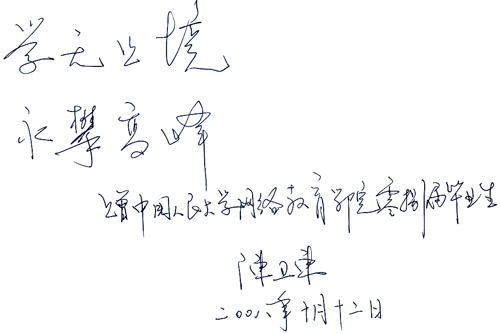 学无止境
永攀高峰
赠中国人民大学网络教育学院零捌届毕业生
陈卫东
二00八年十月十二日